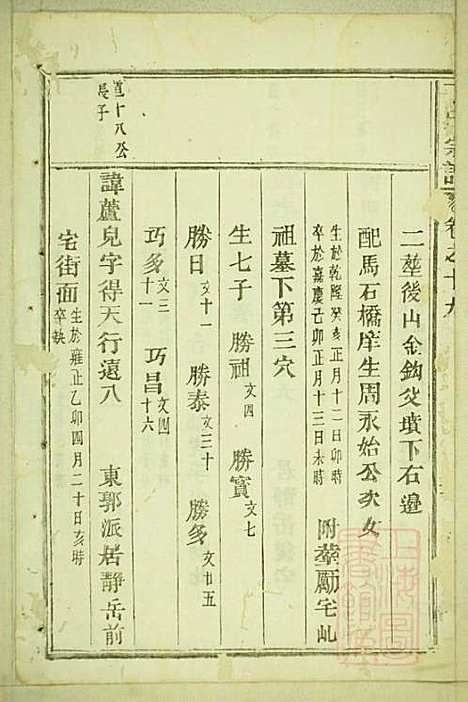 宗譜 卷之十九
二塟後山金鈎父墳下右邊
配馬石橋庠生周永始公次女
生於乾隆癸亥正月十二日卯時
卒於嘉慶己卯正月十三日未時
附塟勵宅乢
祖墓下第三穴
生七子 勝祖文四 勝寳文七
勝日文十一 勝泰文三十 勝多文廿五
巧多文三十一 巧昌文四十六
道十八公長子
諱蘆兒字得天行遠八 東郭派居靜岳前
宅街面生於雍正乙卯四月二十日亥時
卒缺